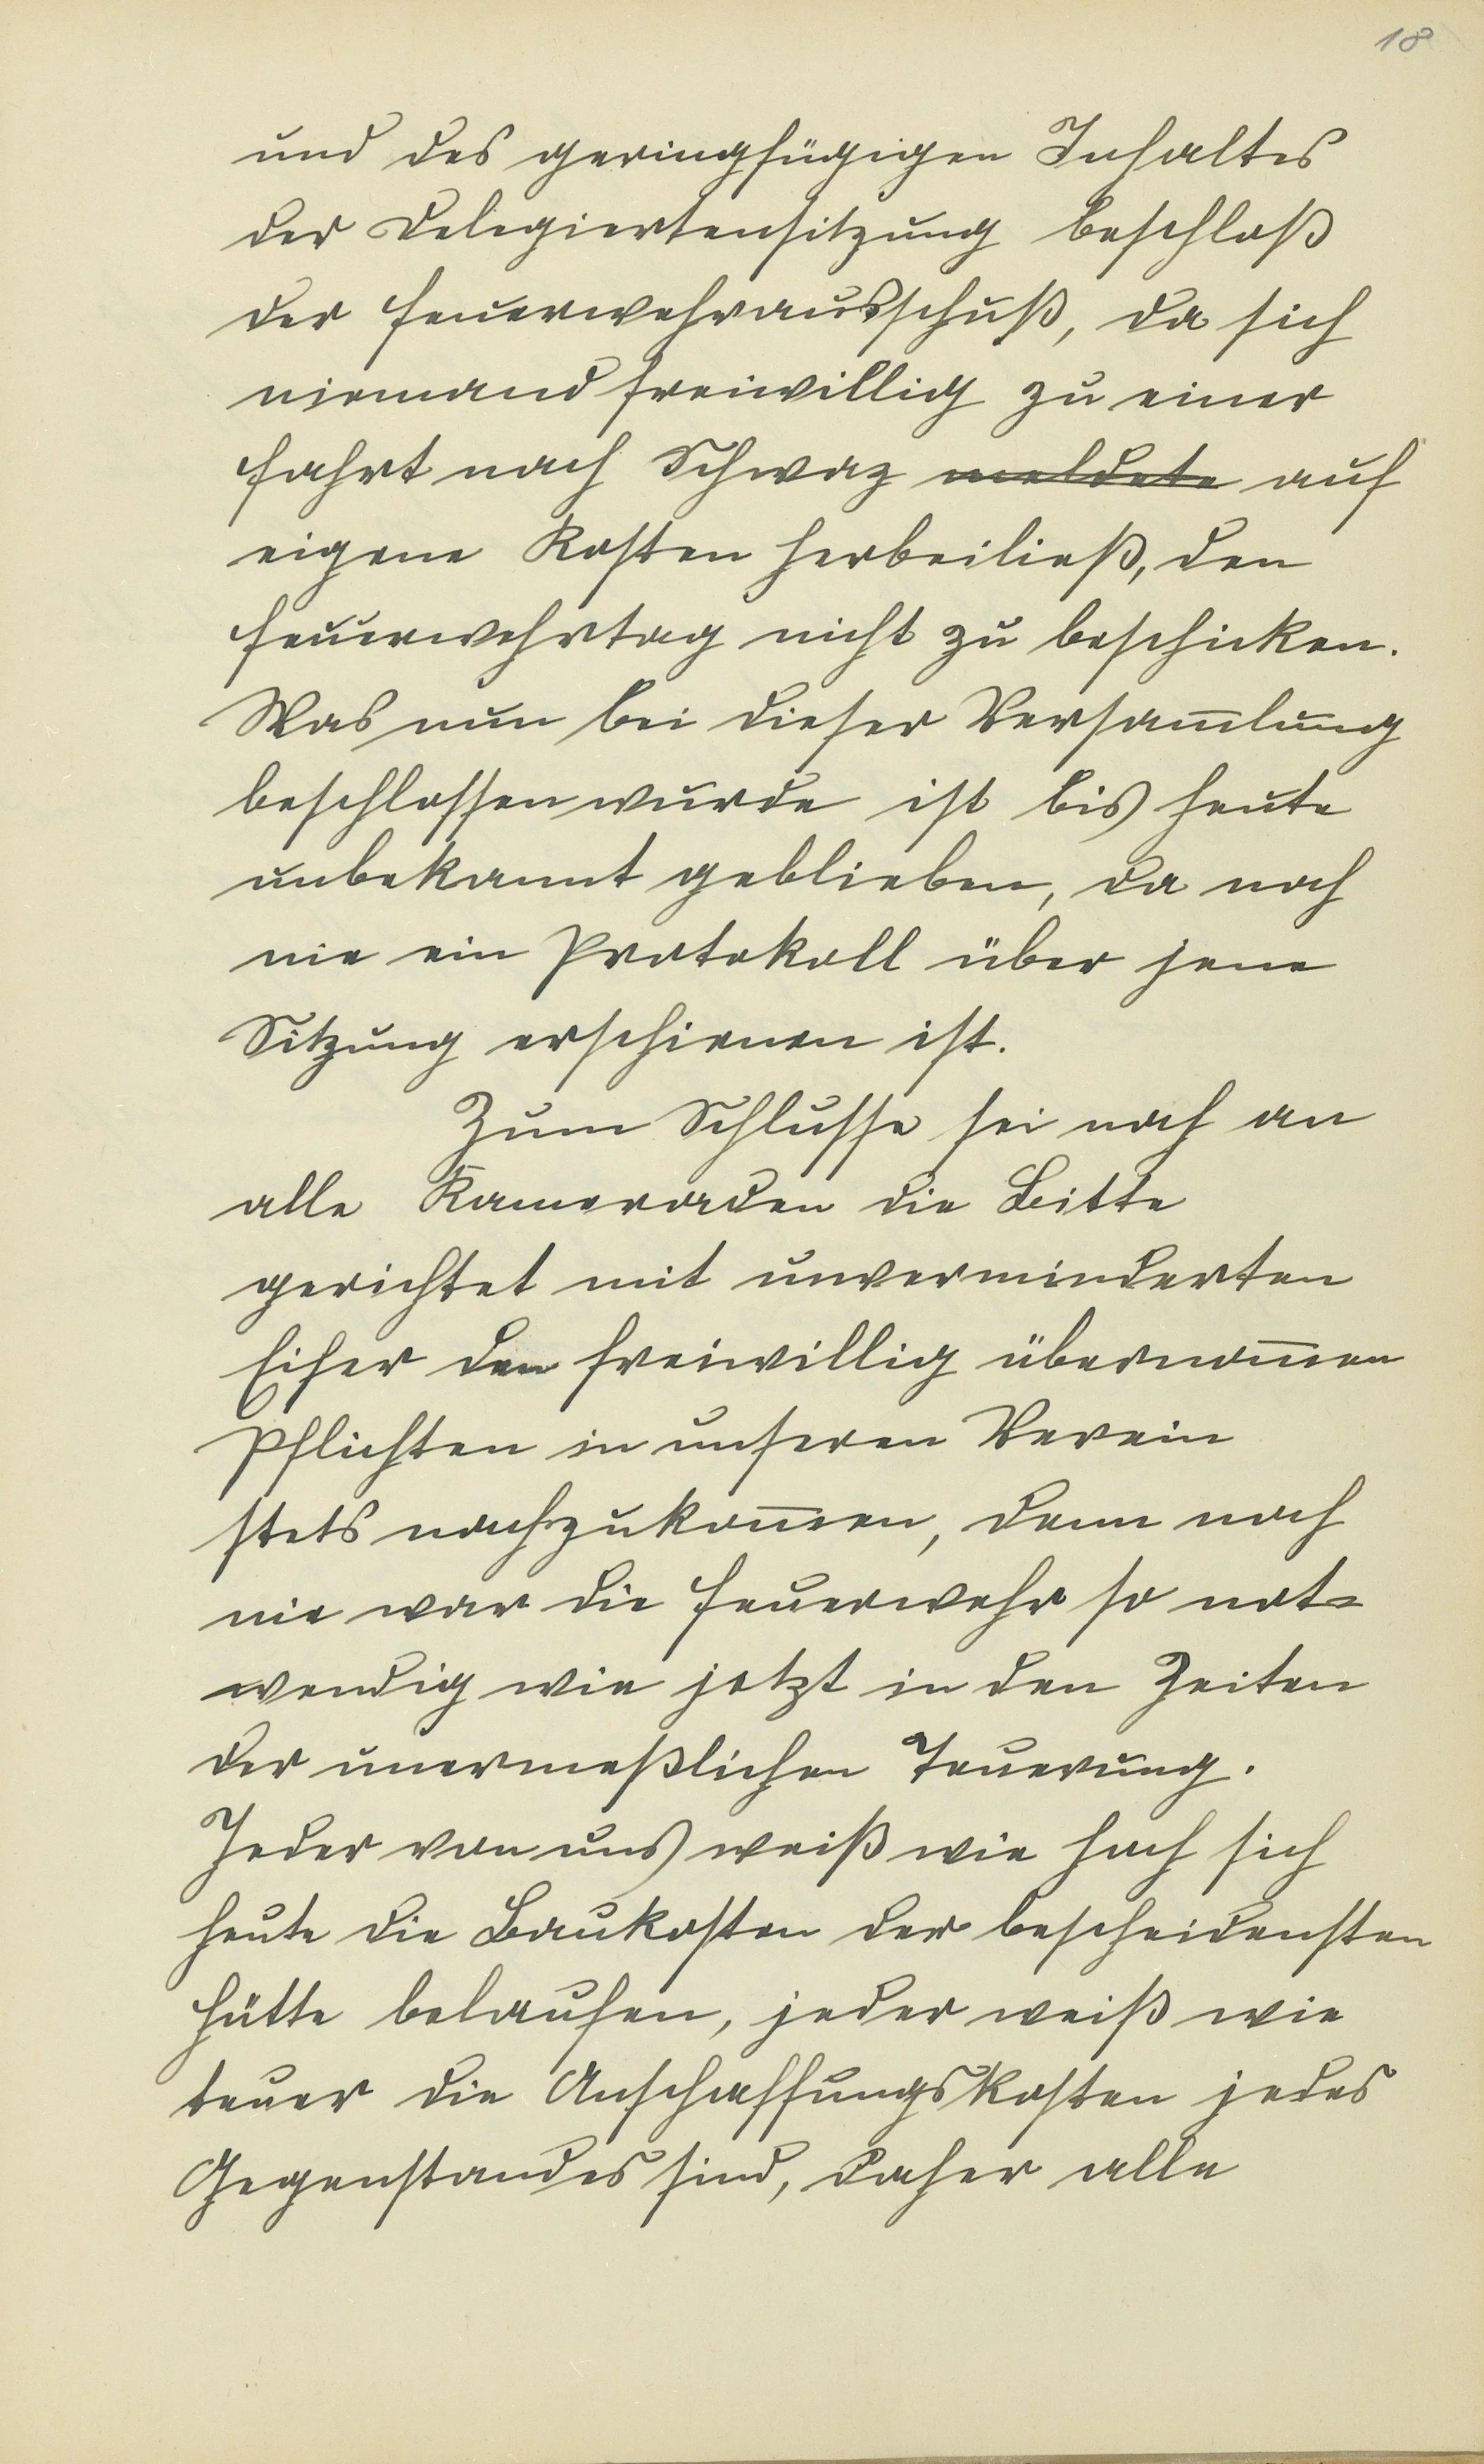 18
und des geringfügigen Inhaltes
der Delegiertensitzung beschloß
der Feuerwehrausschuß, da sich
niemand freiwillig zu einer
Fahrt nach Schwaz meldete auf
eigene Kosten herbeiließ, den
Feuerwehrtag nicht zu beschicken.
Was nun bei dieser Versam̅lung
beschlossen wurde ist bis heute
unbekannt geblieben, da noch
nie ein Protokoll über jene
Sitzung erschienen ist.
Zum Schlusse sei noch an
alle Kameraden die Bitte
gerichtet mit unverminderten
Eifer den freiwillig übernom̅en
Pflichten in unseren Verein
stets nachzukom̅en, denn noch
nie war die Feuerwehr so not=
wendig wie jetzt in den Zeiten
der unermeßlichen Teuerung.
Jeder von uns weiß wie hoch sich
heute die Baukosten der bescheidensten
Hütte belaufen, jeder weiß wie
teuer die Anschaffungskosten jedes
Gegenstandes sind, daher alle